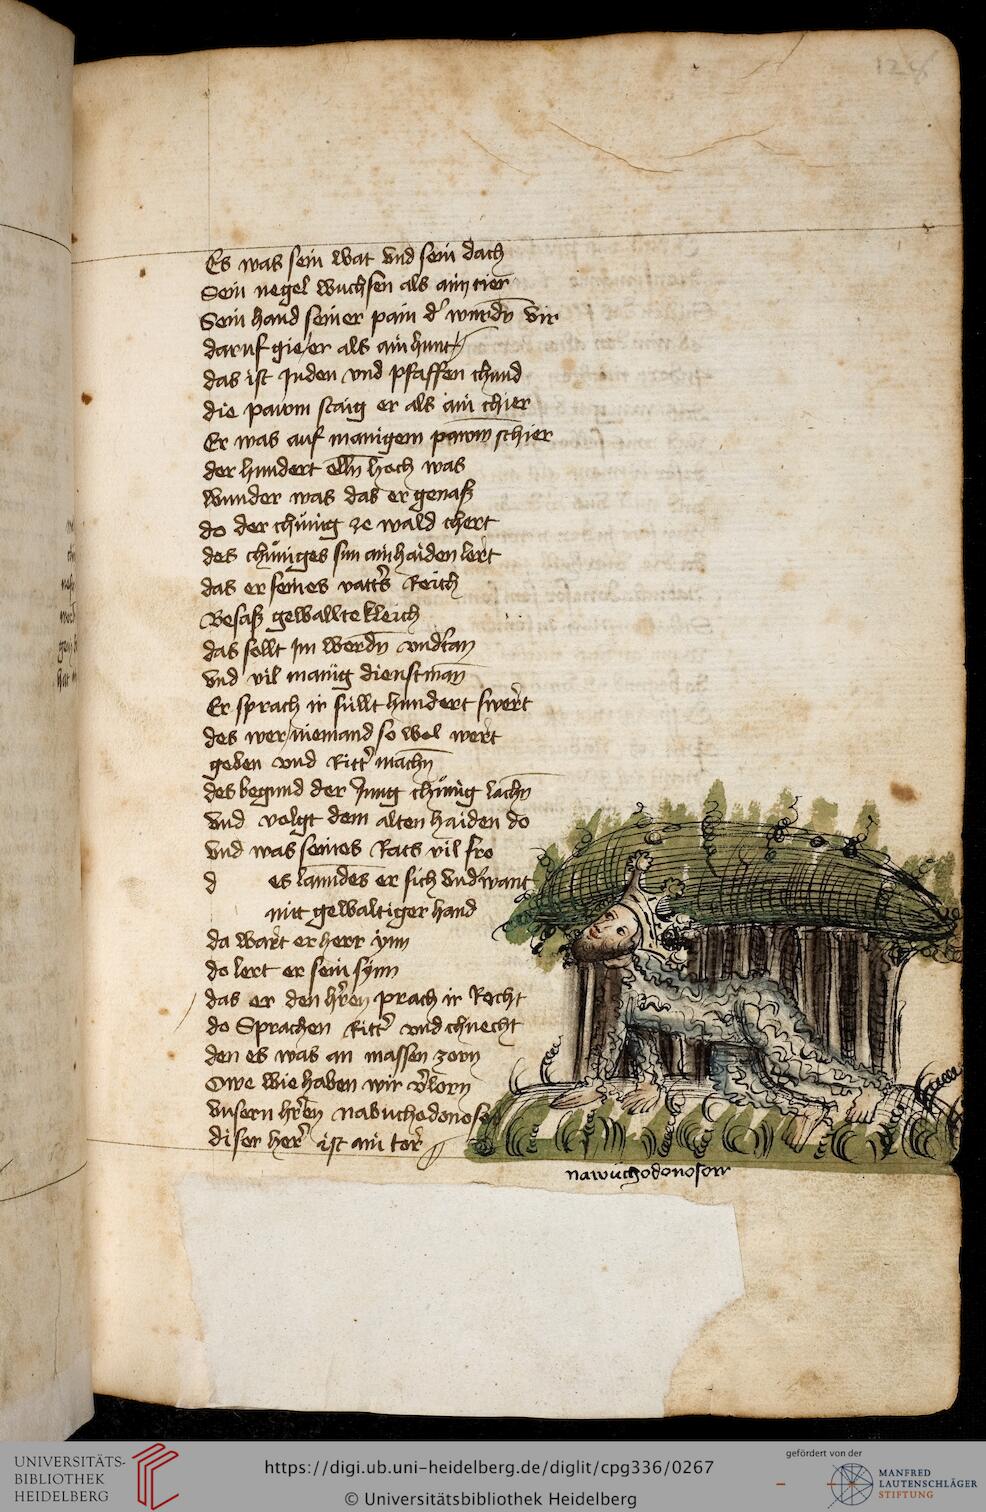 128
Es was sein wat vnd sein dach
Sein negel wuchsen als ain tier
Sein hand seiner pain d' wurdn vir
daruf gie er als ain hunt
das ist Juden vnd pfaffen chund
die pawm staig er als ain thier
Er was auf manigem pawm schier
der hundert elln hoch was
wunder was das er genasz
do der chünig ze wald chert
des chüniges sun ain haiden lert
das er seines vatts Reich
Besasz gewalltekleich
das sollt im werdn vndtan
vnd vil manig dienstman
Er sprach ir süllt hundert swert
des wer niemand so wol wert
geben vnd Ritt' machn
des begund der Jung chünig lachn
vnd volgt dem alten haiden do
vnd was seines Rats vil fro
d es lanndes er sich vnd'want
mit gewaltiger hand
da wart er herr ynn
do lert er sein synn
das er den hren prach ir Recht
do Sprachen Ritt' vnd chnecht
den es was an massen zorn
Owe wie haben wir v'lorn
vnsern hren nabuchodonosor
diser her' ist ain tor
nawuchodonosorr
UNIVERSITÄTS-
BIBLIOTHEK
HEIDELBERG
https://digi.ub.uni-heidelberg.de/diglit/cpg336/0267
© Universitätsbibliothek Heidelberg
gefördert von der
MANFRED
LAUTENSCHLÄGER
STIFTUNG